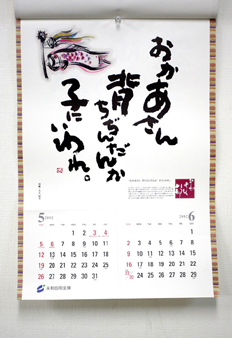 おかあさん
背
ちぢんだんか
子にいわれ。
5
1 2 3 4
5 6 7 8 9 10 11
12 13 14 15 16 17 18
19 20 21 22 23 24 25
26 27 28 29 30 31
6
1
2 3 4 5 6 7 8
9 10 11 12 13 14 15
16 17 18 19 20 21 22
23 30 24 25 26 27 28 29
永和信用金庫